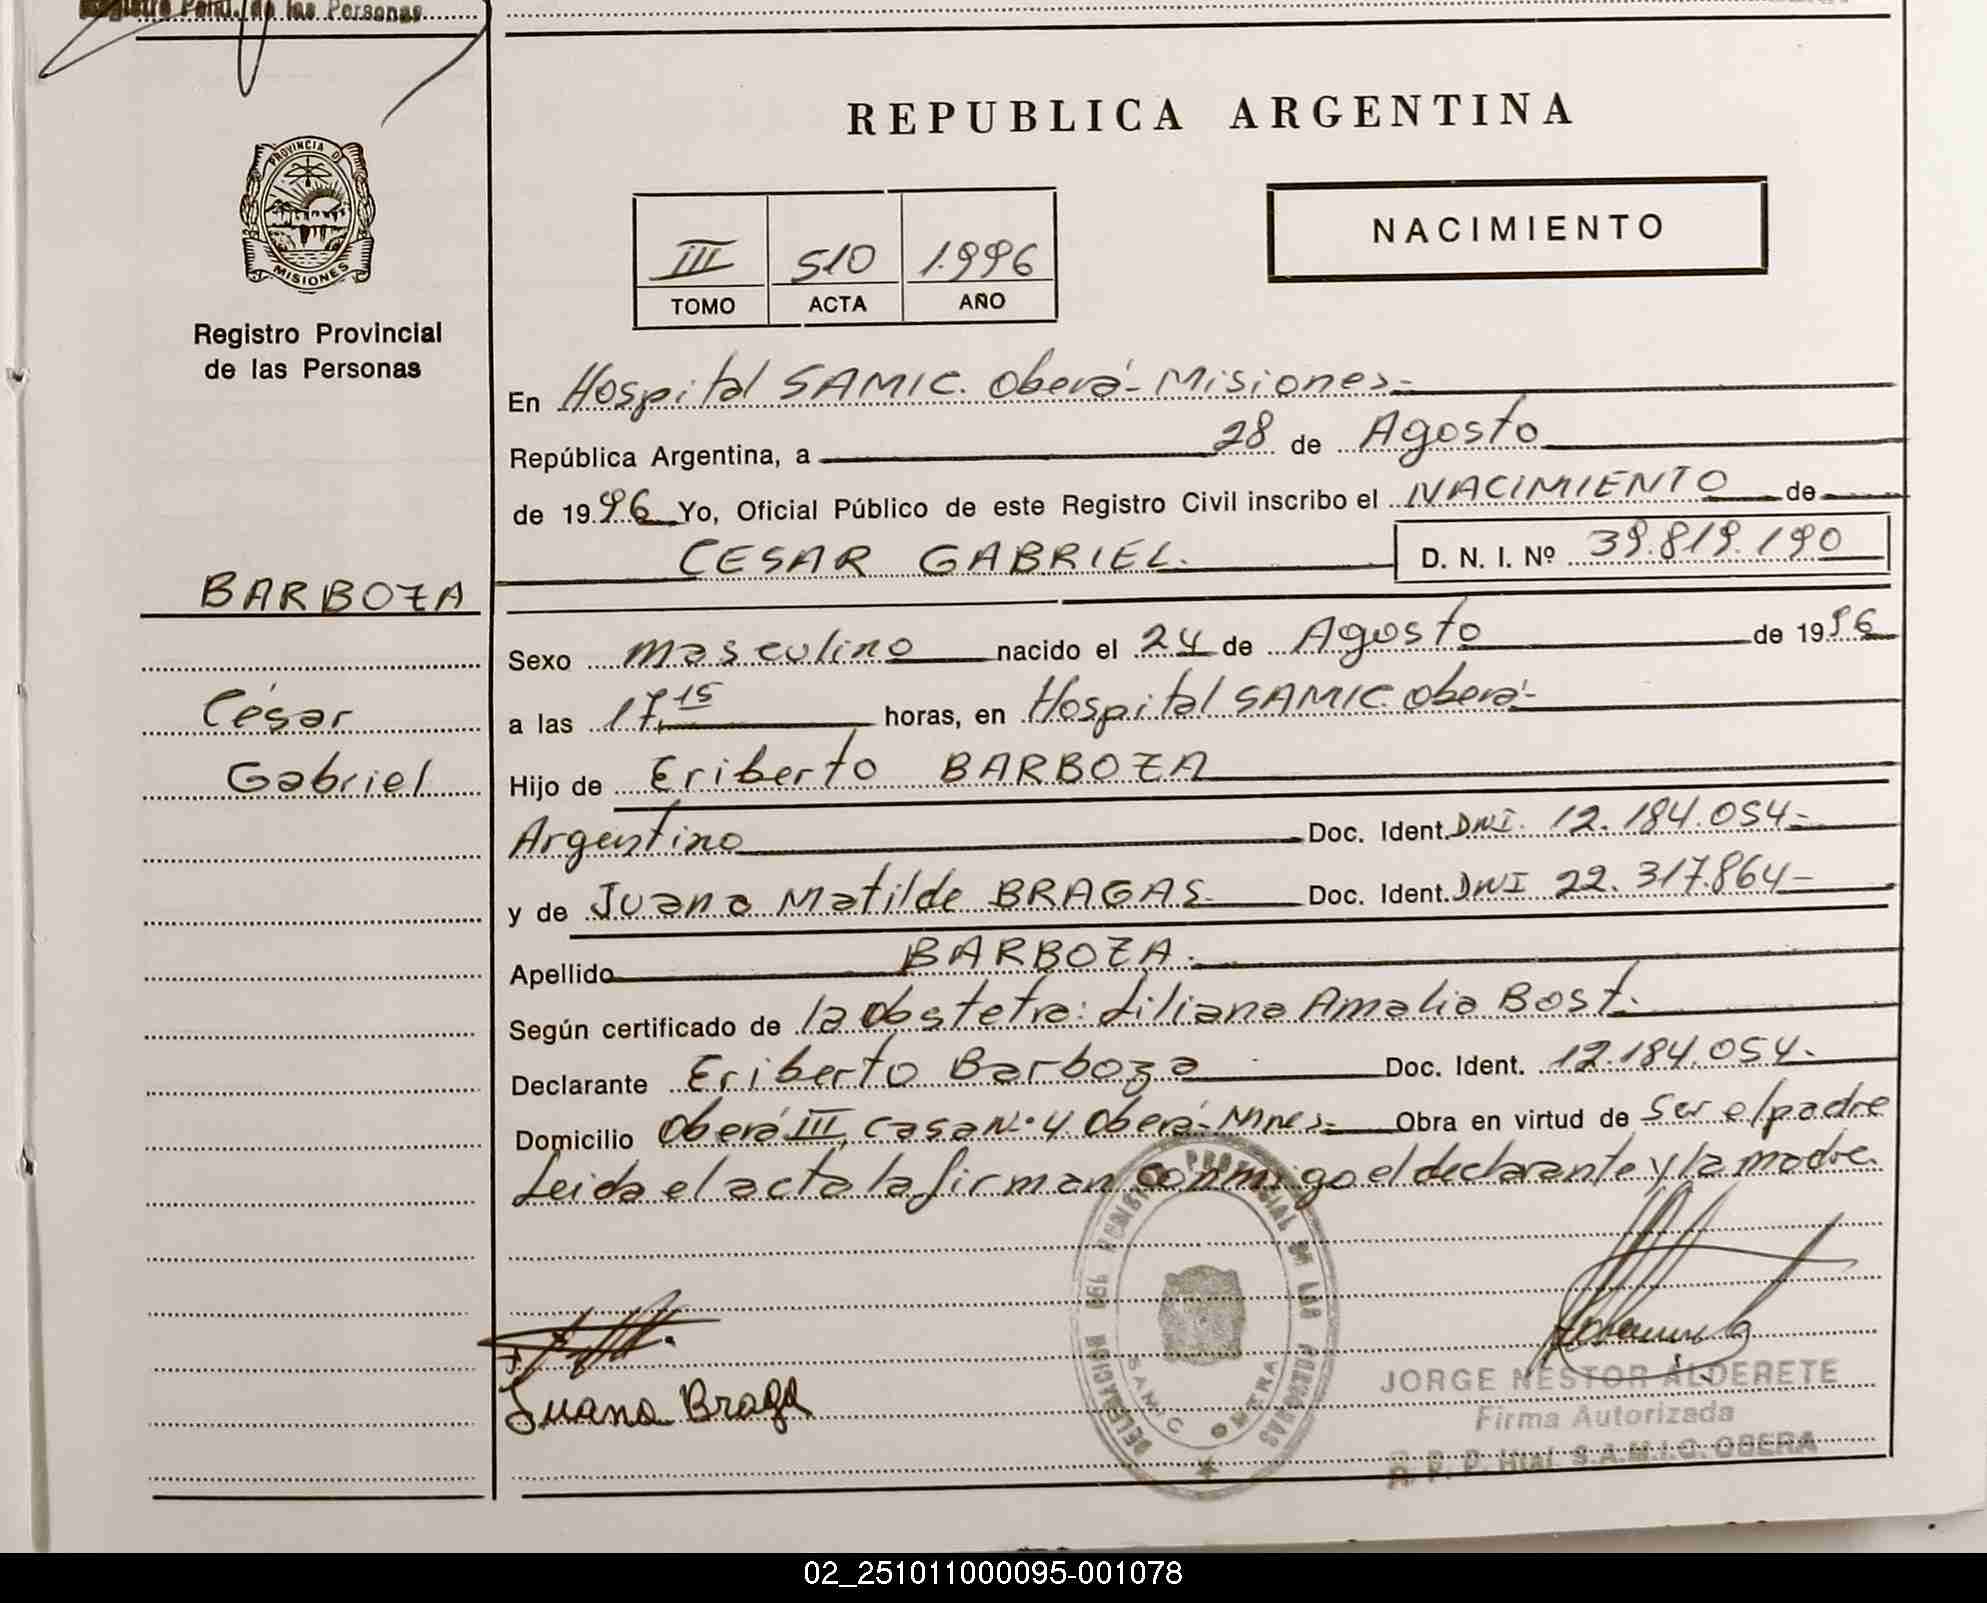 Registro Pcial. de las Personas
REPUBLICA ARGENTINA
PROVINCIA DE
MISIONES
Registro Provincial
de las Personas
III 510 1.996
TOMO ACTA AÑO
NACIMIENTO
En Hospital SAMIC. Oberá- Misiones-
República Argentina, a 28 de Agosto
de 1996 Yo, Oficial Público de este Registro Civil inscribo el NACIMIENTO de
CESAR GABRIEL. D. N. I. Nº 39.819.190
BARBOZA
César
Gabriel
Sexo masculino nacido el 24 de Agosto de 1996
a las 17,15 horas, en Hospital SAMIC. Oberá-
Hijo de Eriberto BARBOZA
Argentino Doc. Ident. DNI. 12.184.054-
y de Juana Matilde BRAGAS Doc. Ident. DNI 22.317.864-
Apellido BARBOZA.
Según certificado de la Obstetra: Liliana Amalia Bost.
Declarante Eriberto Barboza Doc. Ident. 12.184.054-
Domicilio Oberá III, Casa Nº 4 Oberá- Mnes- Obra en virtud de Ser el padre
Leida el acta la firman conmigo el declarante y la madre.
DELEGACION DEL REGISTRO PROVINCIAL DE LAS PERSONAS
SAMIC OBERA
Juana Braga
JORGE NESTOR ALDERETE
Firma Autorizada
R. P. P. Htal. S.A.M.I.C. OBERA
02_251011000095-001078